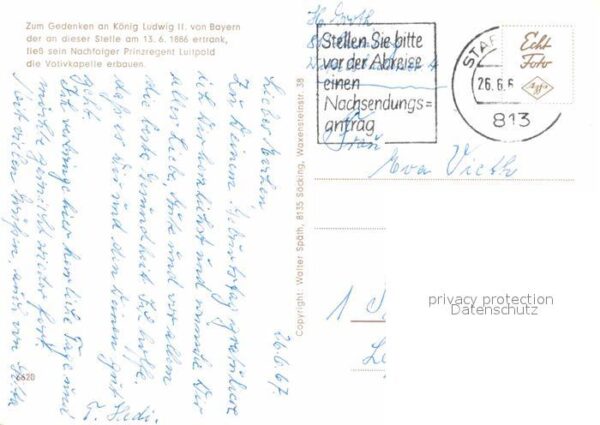 Zum Gedenken an König Ludwig II. von Bayern
der an dieser Stelle am 13. 6. 1886 ertrank,
ließ sein Nachfolger Prinzregent Luitpold
die Votivkapelle erbauen.
H. Groth
Stellen Sie bitte
vor der Abreise
einen
Nachsendungs=
antrag
STAR
26.6.6
813
Echt
Foto
Agfa
Frau
Eva Vieth
1
privacy protection
Datenschutz
Copyright: Walter Späth, 8135 Söcking, Waxensteinstr. 38
26.6.67
Zu Deinem Geburtstag gratuliere
ich Dir herzlichst und wünsche Dir
alles Liebe, Gute und vor allem
die beste Gesundheit. Ich hoffe,
daß es Dir und den Deinen gut
geht.
Ich verbringe hier herrliche Tage und
möchte gar nicht wieder fort.
Mit vielen Grüßen, auch von
T. Hedi.
6620